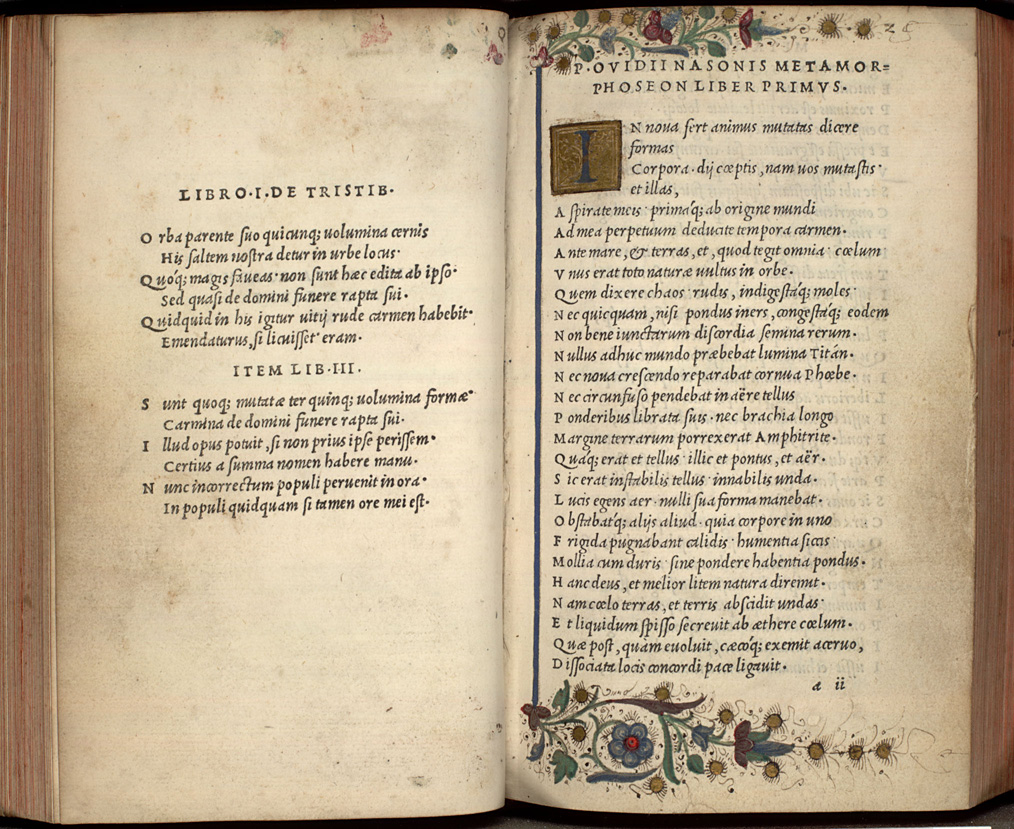 LIBRO·I·DE TRISTIB·
O rba parente suo quicunq; uolumina cernis
His saltem nostra detur in urbe locus·
Quóq; magis faueas· non sunt hæc edita ab ipso·
Sed quasi de domini funere rapta sui·
Quidquid in his igitur uitij rude carmen habebit·
Emendaturus, si licuisset· eram·
ITEM LIB·III·
S unt quoq; mutatæ ter quinq; uolumina formæ·
Carmina de domini funere rapta sui·
I llud opus potuit, si non prius ipse perissem·
Certius a summa nomen habere manu·
N unc incorrectum populi peruenit in ora·
In populi quidquam si tamen ore mei est·
P·OVIDII NASONIS METAMOR=
PHOSEON LIBER PRIMVS·
IN noua fert animus mutatas dicere
formas
Corpora· dij cœptis, nam uos mutastis·
et illas,
A spirate meis· primáq; ab origine mundi
A d mea perpetuum deducite tempora carmen·
A nte mare, & terras, et, quod tegit omnia· cœlum
V nus erat toto naturæ uultus in orbe·
Quem dixere chaos· rudis, indigestáq; moles·
N ec quicquam, nisi pondus iners, congestáq; eodem
N on bene iunctarum discordia semina rerum·
N ullus adhuc mundo præbebat lumina Titán·
N ec noua crescendo reparabat cornua Phœbe·
N ec circunfuso pendebat in aëre tellus
P onderibus librata suis· nec brachia longo
Margine terrarum porrexerat Amphitrite·
Quáq; erat et tellus· illic et pontus, et aër·
S ic erat instabilis tellus· innabilis unda·
L ucis egens aer· nulli sua forma manebat·
O bstabátq; alijs aliud· quia corpore in uno
F rigida pugnabant calidis· humentia siccis·
Mollia cum duris· sine pondere habentia pondus·
H anc deus, et melior litem natura diremit·
N am cœlo terras, et terris abscidit undas·
E t liquidum spisso secreuit ab æthere cœlum·
Quæ post, quàm euoluit, cæcóq; exemit aceruo,
D issociata locis concordi pace ligauit·
a ii